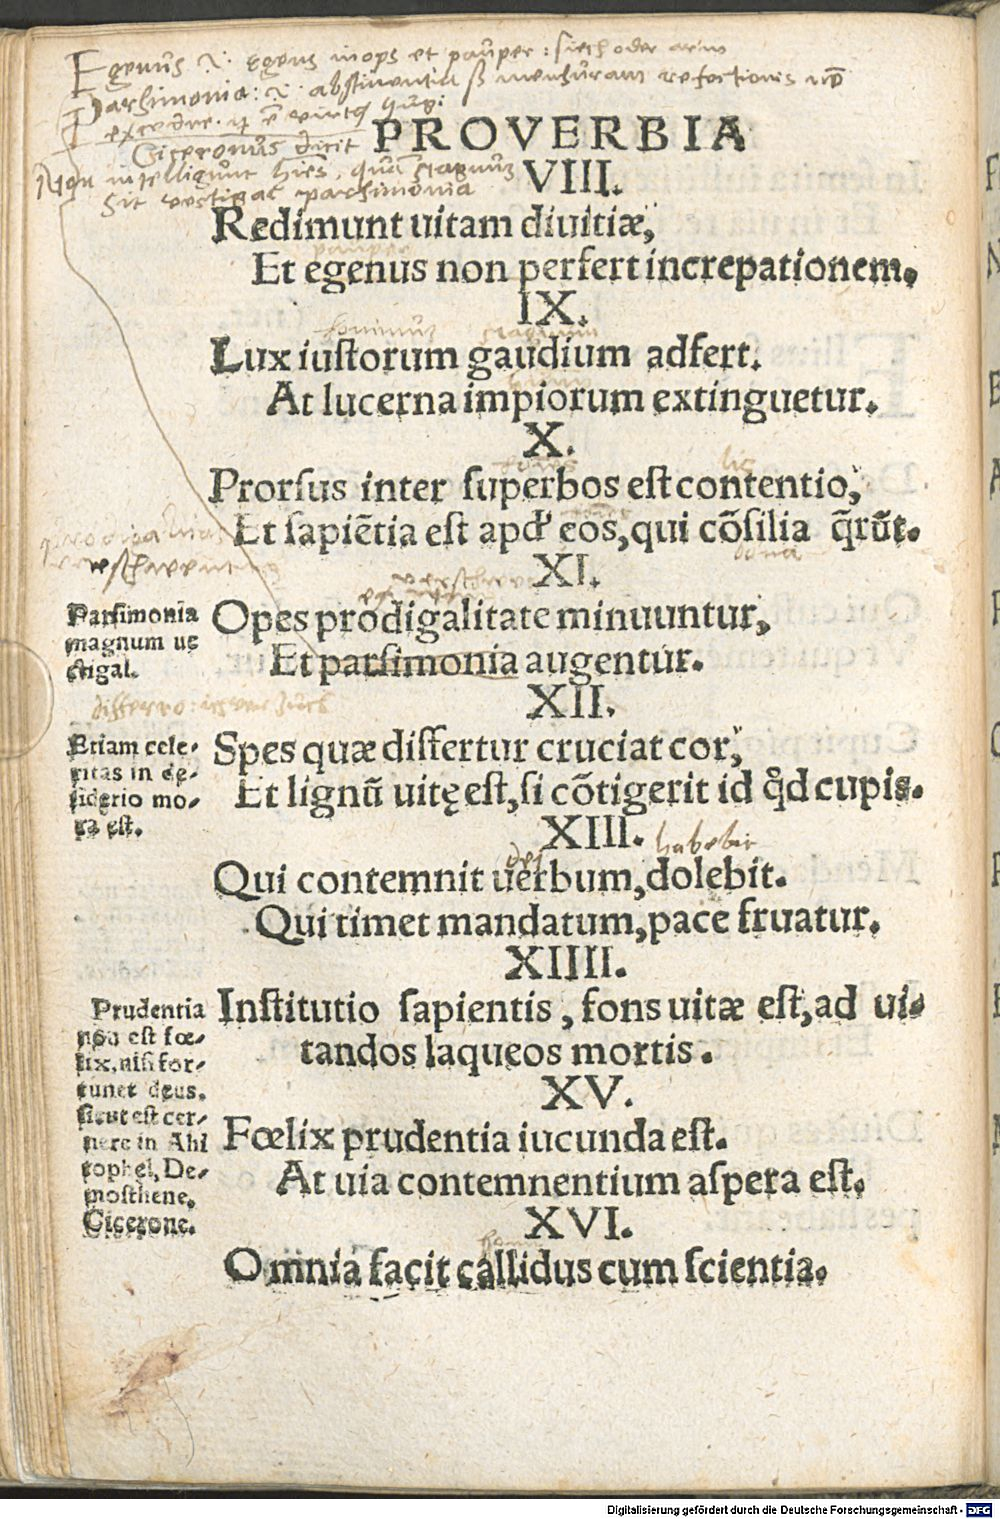 Egenus .i. egens inops et pauper : siech oder arm
Parsimonia : .i. abstinentia mensuram refectionis
excedere
Ciceronus dicit
Non intelligunt quam magnum
Sit vectigal parsimonia
PROVERBIA
VIII.
Redimunt uitam diuitiæ,
pauper
Et egenus non perfert increpationem.
IX.
hominum magnum
Lux iustorum gaudium adfert.
At lucerna impiorum extinguetur.
X.
homines lis
Prorsus inter superbos est contentio,
Et sapiẽtia est apd' eos, qui cõsilia q̃rũt.
bona
XI.
Parsimonia
magnum ue
ctigal.
Opes prodigalitate minuuntur,
Et parsimonia augentur.
XII.
differro
Etiam cele-
ritas in de-
siderio mo-
ra est.
Spes quæ differtur cruciat cor,
Et lignũ uitę est, si cõtigerit id q̊d cupis.
XIII.
dei habebit
Qui contemnit uerbum, dolebit.
Qui timet mandatum, pace fruatur.
XIIII.
Prudentia
non est fœ-
lix, nisi for-
tunet deus.
sicut est cer-
nere in Ahi
tophel, De-
mosthene,
Cicerone.
Institutio sapientis, fons uitæ est, ad ui-
tandos laqueos mortis.
XV.
Fœlix prudentia iucunda est.
At uia contemnentium aspera est.
XVI.
Omnia facit callidus cum scientia.
Digitalisierung gefördert durch die Deutsche Forschungsgemeinschaft - DFG